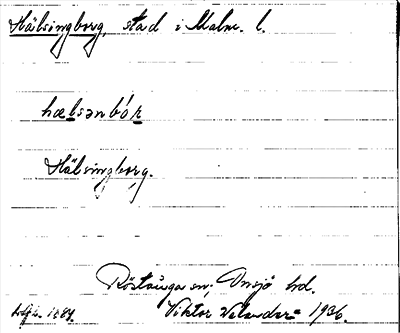 Hälsingborg, stad i Malm. l.
hælsənbór
Hälsingborg.
Röstånga sn, Onsjö hd.
Viktor Velander 1936.
1884.